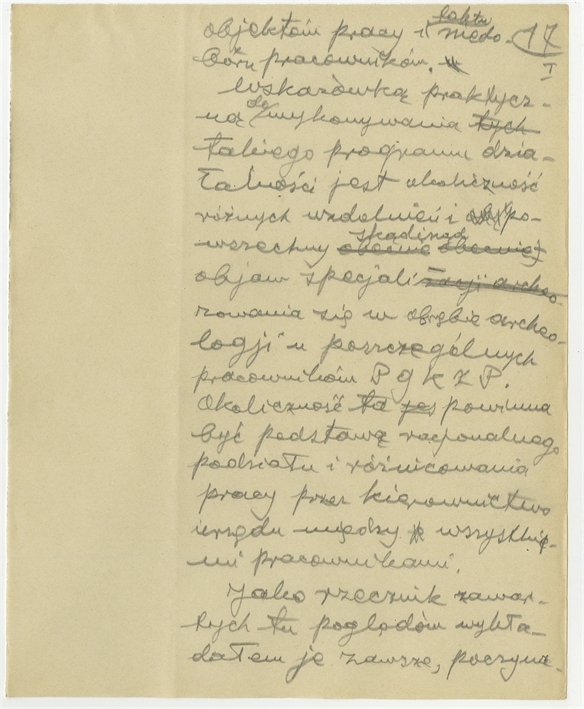 objektów pracy i faktu niedo- 17
boru pracowników. I
Wskazówką praktycz-
ną do wykonywania tych
takiego programu dzia-
łalności jest okoliczność
różnych uzdolnień i po-
wszechny obecnie skądinąd obecnie
objaw specjalizacji archeo-
zowania się w obrębie archeo-
logji u poszczególnych
pracowników P G K Z P.
Okoliczność ta jes powinna
być podstawą racjonalnego
podziału i różnicowania
pracy przez kierownictwo
urzędu między wszystki-
mi pracownikami.
Jako rzecznik zawar-
tych tu poglądów wykła-
dałem je zawsze, poczyna-